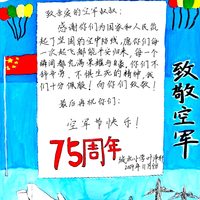 致亲爱的空军叔叔:
感谢你们为国家和人民筑
起了坚固的空中防线,愿你们每
一次起飞都能平安归来,每一个
瞬间都充满荣耀与自豪,你们不
辞辛劳、不惧生死的精神,我
们十分佩服!向你们致敬!
最后再祝你们:
空军节快乐!
75周年
城北小学
2024年11月5日
致敬空军